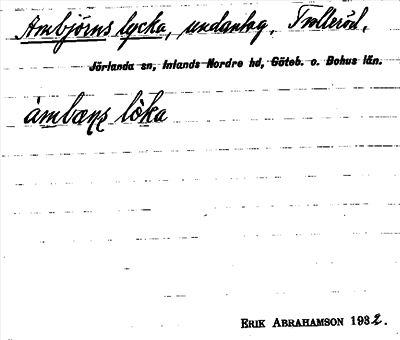 Ambjörns lycka, undantag, Trolleröd.
Jörlanda sn, Inlands Nordre hd, Göteb. o. Bohus län.
àmbæɳʂ lò̀ka
ERIK ABRAHAMSON 1932.